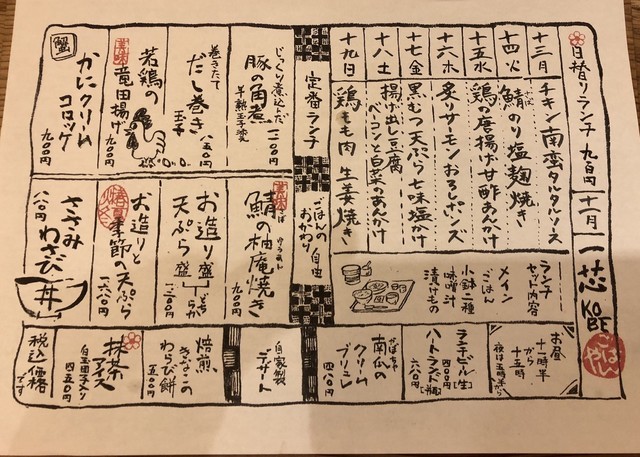 一芯
KOBE
ごはんや
日替りランチ 九百円
十一月
十三月 チキン南蛮タルタルソース
十四火 鯖のり塩麹焼き
十五水 鶏の唐揚げ甘酢あんかけ
十六木 炙りサーモンおろしポンズ
十七金 黒むつ天ぷら七味塩かけ
十八土 揚げ出し豆腐
ベーコンと白菜のあんかけ
十九日 鶏もも肉 生姜焼き
ランチ
セット内容
メイン
ごはん
小鉢二種
味噌汁
漬けもの
お昼
十一時半
から
十五時
夜は五時半から
ランチビール[生]
四〇〇円
ハートランド[中瓶]
六八〇円
定番ランチ
ごはんの
おかわり自由
じっくり煮込んだ
豚の角煮
半熟玉子
一二〇〇円
巻きたて
だし巻き
玉子
八五〇円
若鶏の
竜田揚げ
九〇〇円
蟹
かにクリーム
コロッケ
九〇〇円
鯖の柚庵焼き
九〇〇円
お造り盛
天ぷら盛
どちらか
一二〇〇円
お造りと
季節の天ぷら
一六八〇円
ささみ
わさび丼
八八〇円
自家製
デザート
かぼちゃ
南瓜の
クリーム
ブリュレ
四八〇円
焙煎
きなこの
わらび餅
五〇〇円
抹茶
アイス
白玉団子入り
四五〇円
税込価格
です